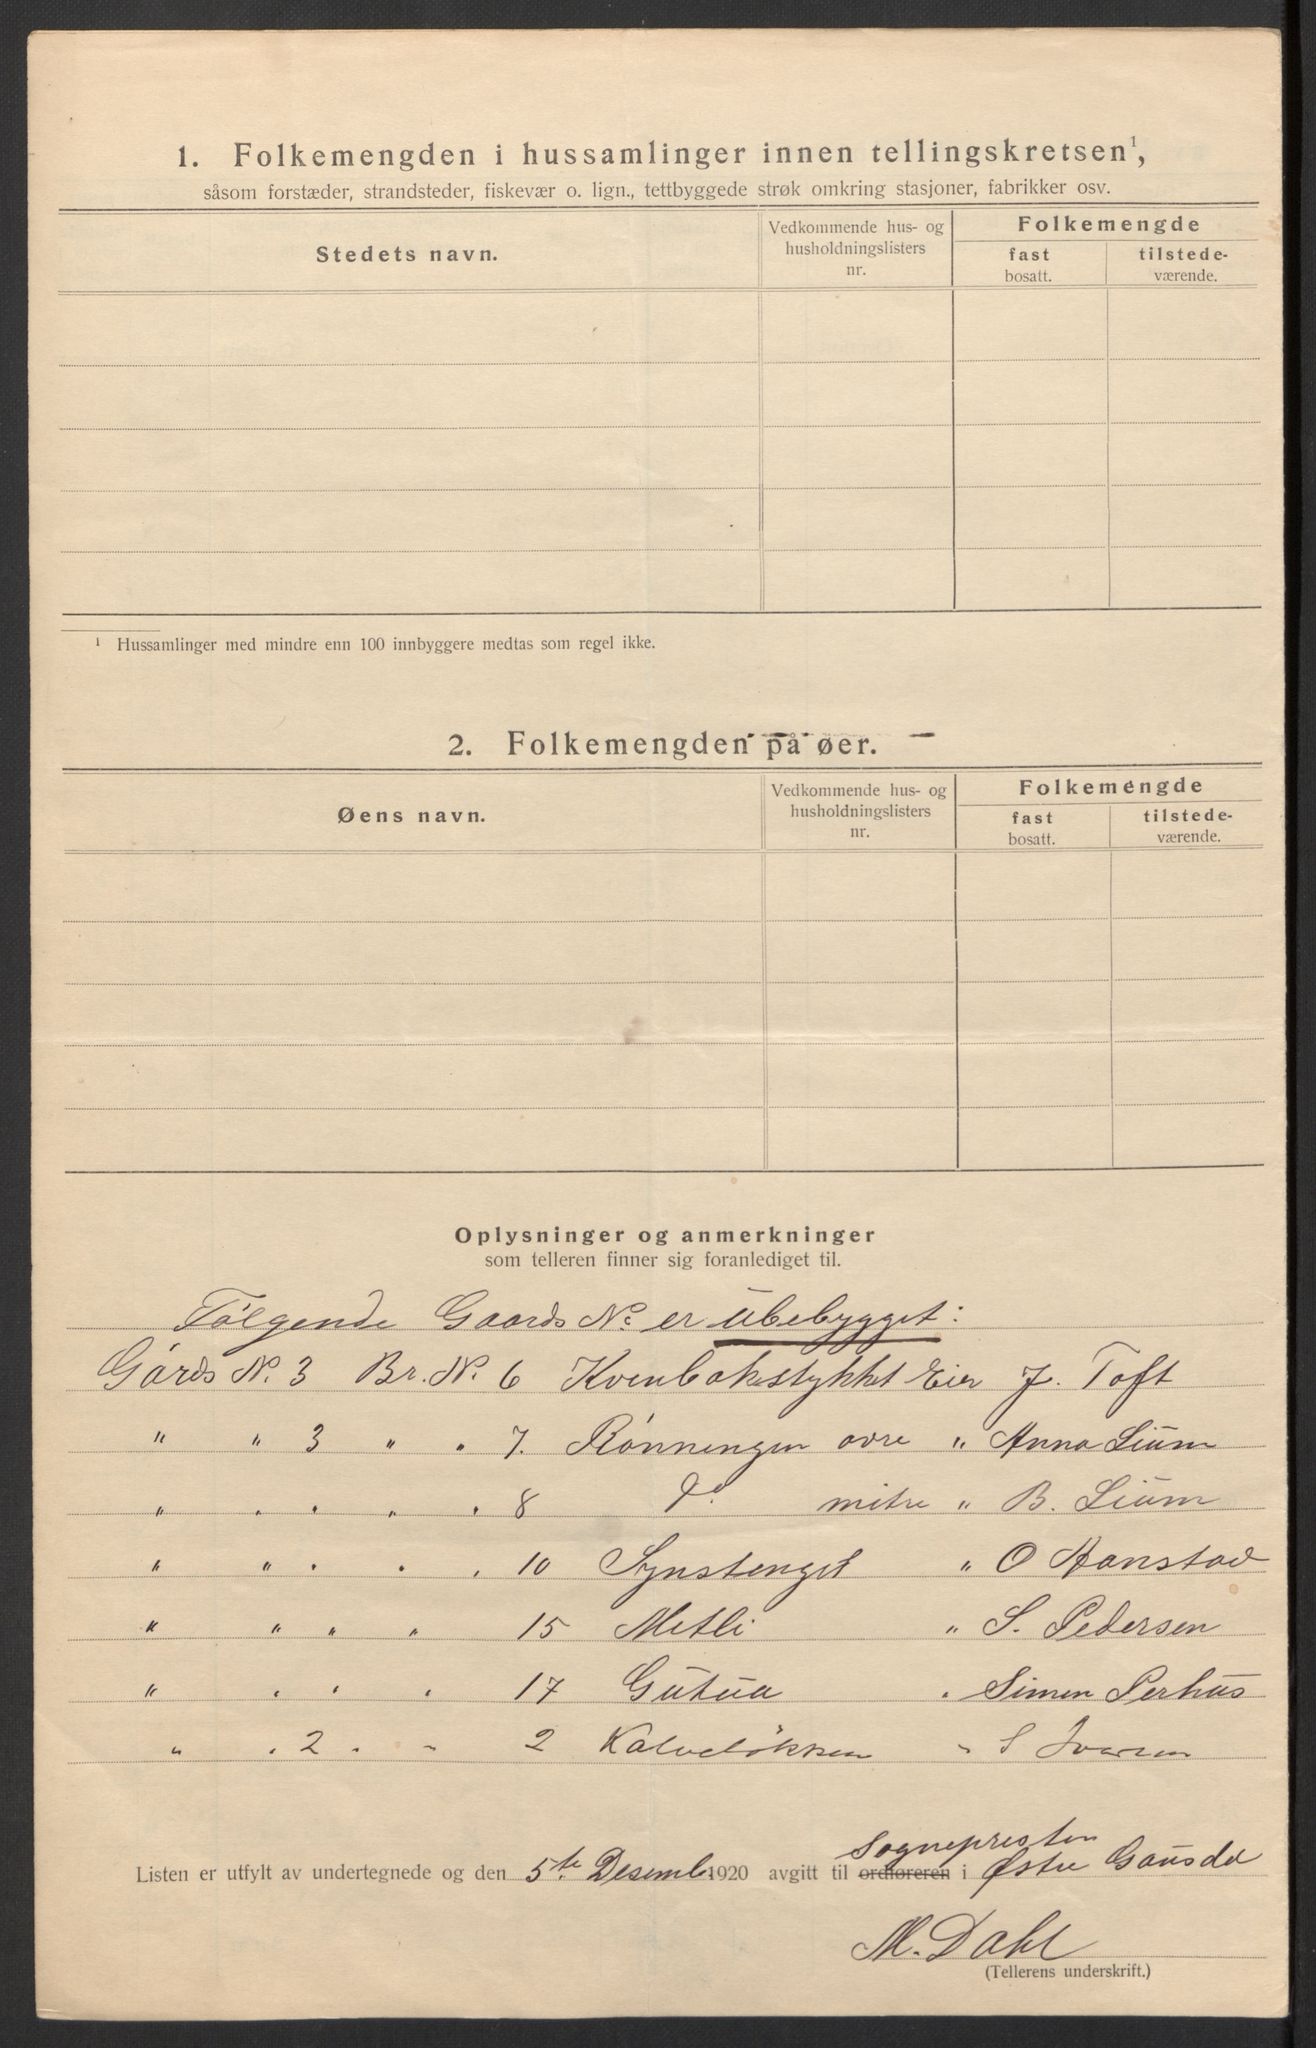 1. Folkemengden i hussamlinger innen tellingskretsen¹,
såsom forstæder, strandsteder, fiskevær o. lign., tettbyggede strøk omkring stasjoner, fabrikker osv.
Stedets navn.
Vedkommende hus- og
husholdningslisters
nr.
Folkemengde
fast
bosatt.
tilstede-
værende.
¹ Hussamlinger med mindre enn 100 innbyggere medtas som regel ikke.
2. Folkemengden på øer.
Øens navn.
Vedkommende hus- og
husholdningslisters
nr.
Folkemengde
fast
bosatt.
tilstede-
værende.
Oplysninger og anmerkninger
som telleren finner sig foranlediget til.
Følgende Gaards No er ubebygget:
Gårds N. 3 Br. N. 6 Kvenbakstykket Eier J. Toft
" " 3 " " 7. Rønningen øvre " Anna Lium
" " " " 8 Do mitre " B. Lium
" " " " " 10 Synstenget " O Hanstad
" " " " 15 Metli " S. Pedersen
" " " " 17 Gutua " Simen Perhus
" " 2 " " 2 Kalveløkken " S Iversen
Listen er utfylt av undertegnede og den 5te Desemb. 1920 avgitt til ordføreren i Østre Gausdal
Sognepresten
M. Dahl
(Tellerens underskrift.)